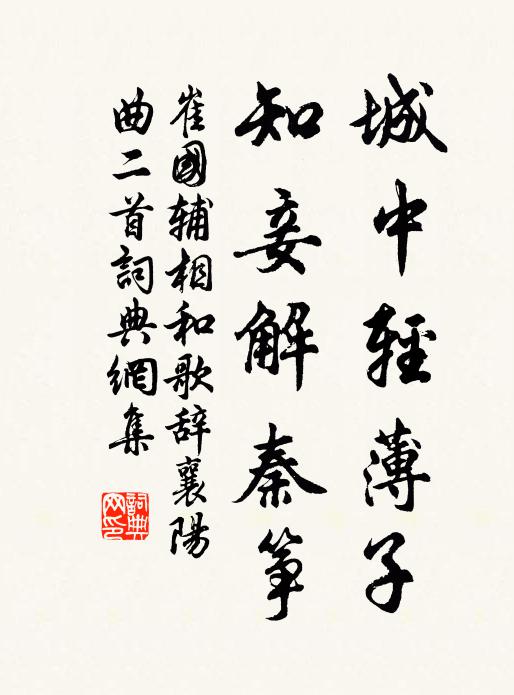 城中輕薄子
知妾解秦筝
崔國辅相和歌辞襄陽
曲二首詞典網集
詞典網印